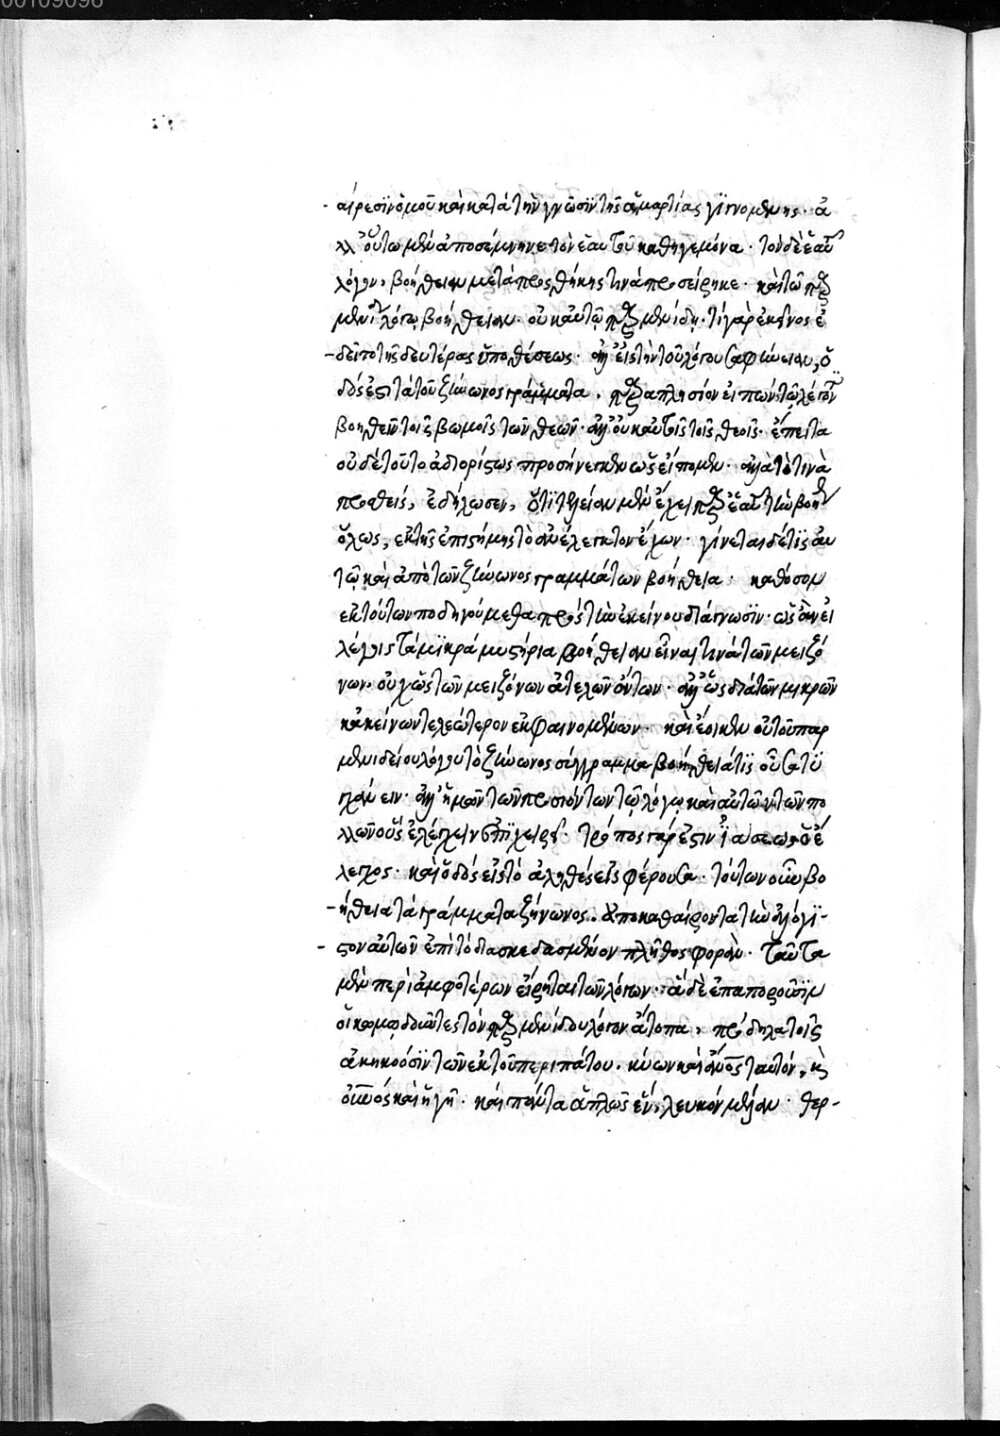 αἵρεσιν ὁμοῦ καὶ κατὰ τὴν γνῶσιν τῆς ἁμαρτίας γϊγνομένης· ἀ
λλ' οὕτω μὲν ἀπεσέμνυνε τὸν ἑαυτοῦ καθηγεμόνα· τὸν δὲ ἑαυτοῦ
λόγον, βοήθειαν μετὰ προσθήκης τινὰ προσείρηκε· καὶ τῶ παρ
μενίδου λόγω βοήθειαν· οὐκ αὐτῶ παρμενίδη· τί γὰρ ἐκεῖνος ἐ
δεῖτο τῆς δευτέρας ὑποθέσεως· ἀλλ' εἰς τὴν τοῦ λόγου σαφήνειαν, ὁ
δός ἐστι τὰ τοῦ ζήνωνος γράμματα, παραπλησίον εἰ πών τῶ λέγοντι
βοηθεῖν τοῖς βωμοῖς τῶν θεῶν· ἀλλ' οὐκ αὐτοῖς τοῖς θεοῖς· ἔπειτα
οὐδὲ τοῦτο ἀδιορίστως προσήνεγκεν ὡς εἴπομεν· ἀλλὰ τὸ τινὰ
προσθείς, ἐδήλωσεν, ὅτι τελείαν μὲν ἔχει παρ' ἑαυτῆ τὴν βοήθειαν
ὅλως, ἐκ τῆς ἐπιστήμης τὸ ἀνέλεγκτον ἔχων· γίνεται δέ τις αὐ
τῶ καὶ ἀπὸ τῶν ζήνωνος γραμμάτων βοήθεια· καθόσον
ἐκ τούτων ποδηγούμεθα πρὸς τὴν ἐκείνου διάγνωσϊν· ὡς ἂν εἰ
λέγοις τὰ μϊκρὰ μυστήρια βοήθειαν εἶναι τινὰ τῶν μειζό
νων· οὐχ ὡς τῶν μειζόνων ἀτελῶν ὄντων· ἀλλ' ὡς διὰ τῶν μικρῶν
κἀκείνων τελεώτερον ἐκφαινομένων· καὶ ἔοικεν οὐ τοῦ παρ
μενιδείου λόγου τὸ ζήνωνος σύγγραμμα βοήθειά τϊς οὖσα τϋ
γχάνειν· ἀλλ' ἡμῶν τῶν προσιόντων τῶ λόγω καὶ αὐτῶν τῶν πο
λλῶν οὓς ἐλέγχειν ἐπϊχειρεῖ· τρόπος γάρ ἐστιν ἰάσεως ὁ ἔ
λεγχος· καὶ ὁδὸς εἰς τὸ ἀληθὲς εἰσφέρουσα· τούτων οὖν βο
ήθεια τὰ γράμματα ζήνωνος. ἀποκαθαίροντα τὴν ἀλόγϊ-
στον αὐτῶν ἐπὶ τὸ διασκεδασμένον πλῆθος φοράν· ταῦτα
μὲν περὶ ἀμφοτέρων εἴρηται τῶν λόγων· ἃ δὲ ἐπαποροῦσϊν
οἱ κωμωδοῦντες τὸν παρμενίδου λόγον ἄτοπα, πρόδηλα τοῖς
ἀκηκοόσϊν τῶν ἐκ τοῦ περιπάτου. κύων καὶ ἄνος ταυτόν, κ
οὐνος καὶ ἡ γῆ· καὶ πάντα ἁπλῶς ἕν, λευκὸν μέλαν· θερ-